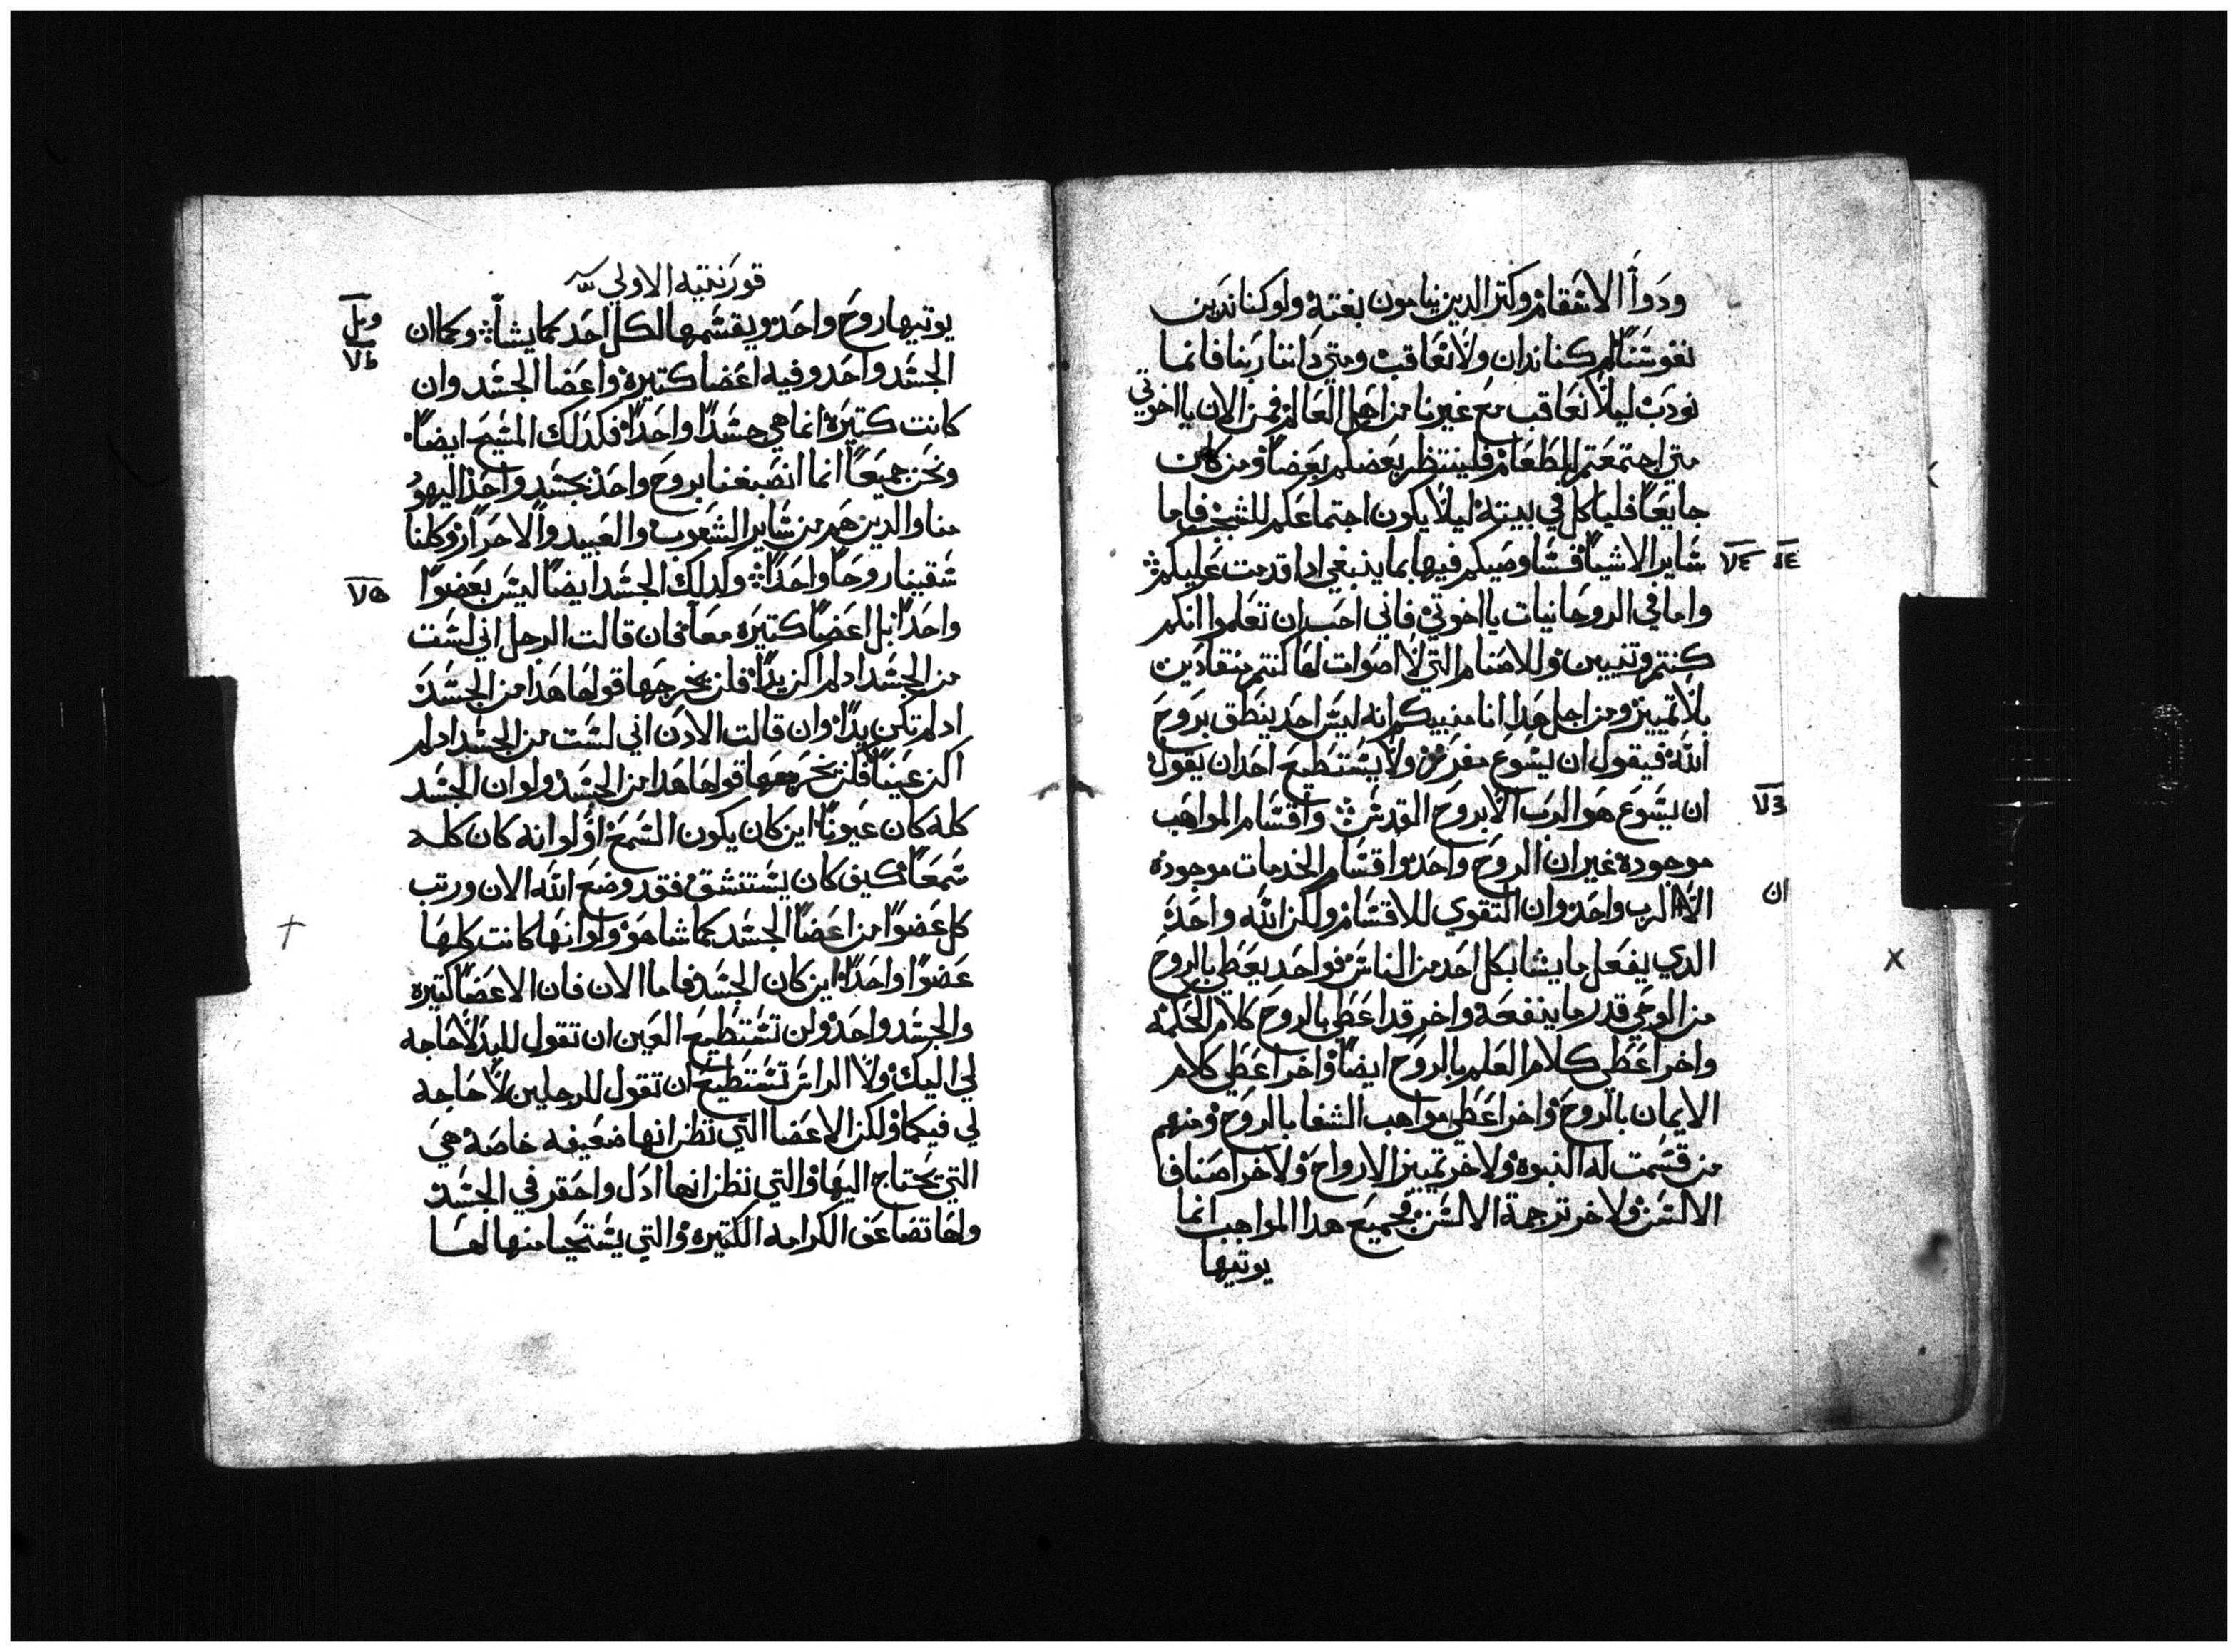 ودوا الاسقام وكتر الدين ينامون بغتة ولو كنا ندين
نفوسنا لم كنا ندان ولا نعاقب ومتي داننا ربنا فانما
نودب ليلا نعاقب مع غيرنا من اهل العالم فمن الان يا اخوتي
متي اجتمعتم للطعام فلينتظر بعضكم بعضا ومن كان
جايعا فلياكل في بيته ليلا يكون اجتماعكم للشجب فاما
ساير الاشيا فساوصيكم فيها بما ينبغي ادا قدمت عليكم
واما في الروحانيات يا اخوتي فاني احب ان تعلموا انكم
كنتم وتنيين وللاصنام التي لا اصوات لها كنتم منقادين
بلا تمييز ومن اجل هدا انا منبيكم انه ليس احد ينطق بروح
الله فيقول ان يسوع مفرز ولا يستطيع احد ان يقول
ان يسوع هو الرب الا بروح القدس واقسام المواهب
موجودة غير ان الروح واحد واقسام الخدمات موجودة
الا الرب واحد وان التقوي للاقسام ولكن الله واحد
ان
الدي يفعل ما يشا بكل احد من الناس فواحد يعطي بالروح
من الوحي قدر ما ينفعة واخر قد اعطي بالروح كلام الحكمه
واخر اعطي كلام العلم بالروح ايضا واخر اعطي كلام
الايمان بالروح واخر اعطي مواهب الشفا بالروح ومنهم
من قسمت له النبوة ولاخر تمييز الارواح ولاخر اصنافا
الالسن ولاخر ترجمة الالسن فجميع هدا المواهب انما
يوتيها
قورنتيه الاولي
يوتيها روح واحد ويقسمها لكل احد كما يشا وكما ان
الجسد واحد وفيه اعضا كتيرة واعضا الجسد وان
كانت كتيرة انما هي جسدا واحدا فكدلك المسيح ايضا
ونحن جميعا انما انصبغنا بروح واحد بجسد واحد اليهود
منا والدين هم من ساير الشعوب والعبيد والاحرار وكلنا
سقينا روحا واحدا وكدلك الجسد ايضا ليس بعضوا
واحدا بل اعضا كتيره معا فان قالت الرجل اني لست
من الجسد اد لم اكن يدا فلن يخرجها قولها هدا من الجسد
اد لم تكن يدا وان قالت الادن اني لست من الجسد اد لم
اكن عينا فلن يخرجها قولها هدا من الجسد ولو ان الجسد
كله كان عيونا اين كان يكون السمع او لو انه كان كله
سمعا كيف كان يستنشق فقد وضع الله الان ورتب
كل عضوا من اعضا الجسد كما شا هو ولو انها كانت كلها
عضوا واحدا اين كان الجسد فاما الان فان الاعضا كتيره
والجسد واحد ولن تستطيع العين ان تقول لليد لا حاجه
لي اليك ولا الراس تستطيع ان تقول للرجلين لا حاجه
لي فيكما ولكن الاعضا التي نظن انها ضعيفه خاصة هي
التي نحتاج اليها والتي نظن انها ادل واحقر في الجسد
ولها تضاعف الكرامه الكتيره والتي يستحيا منها لها